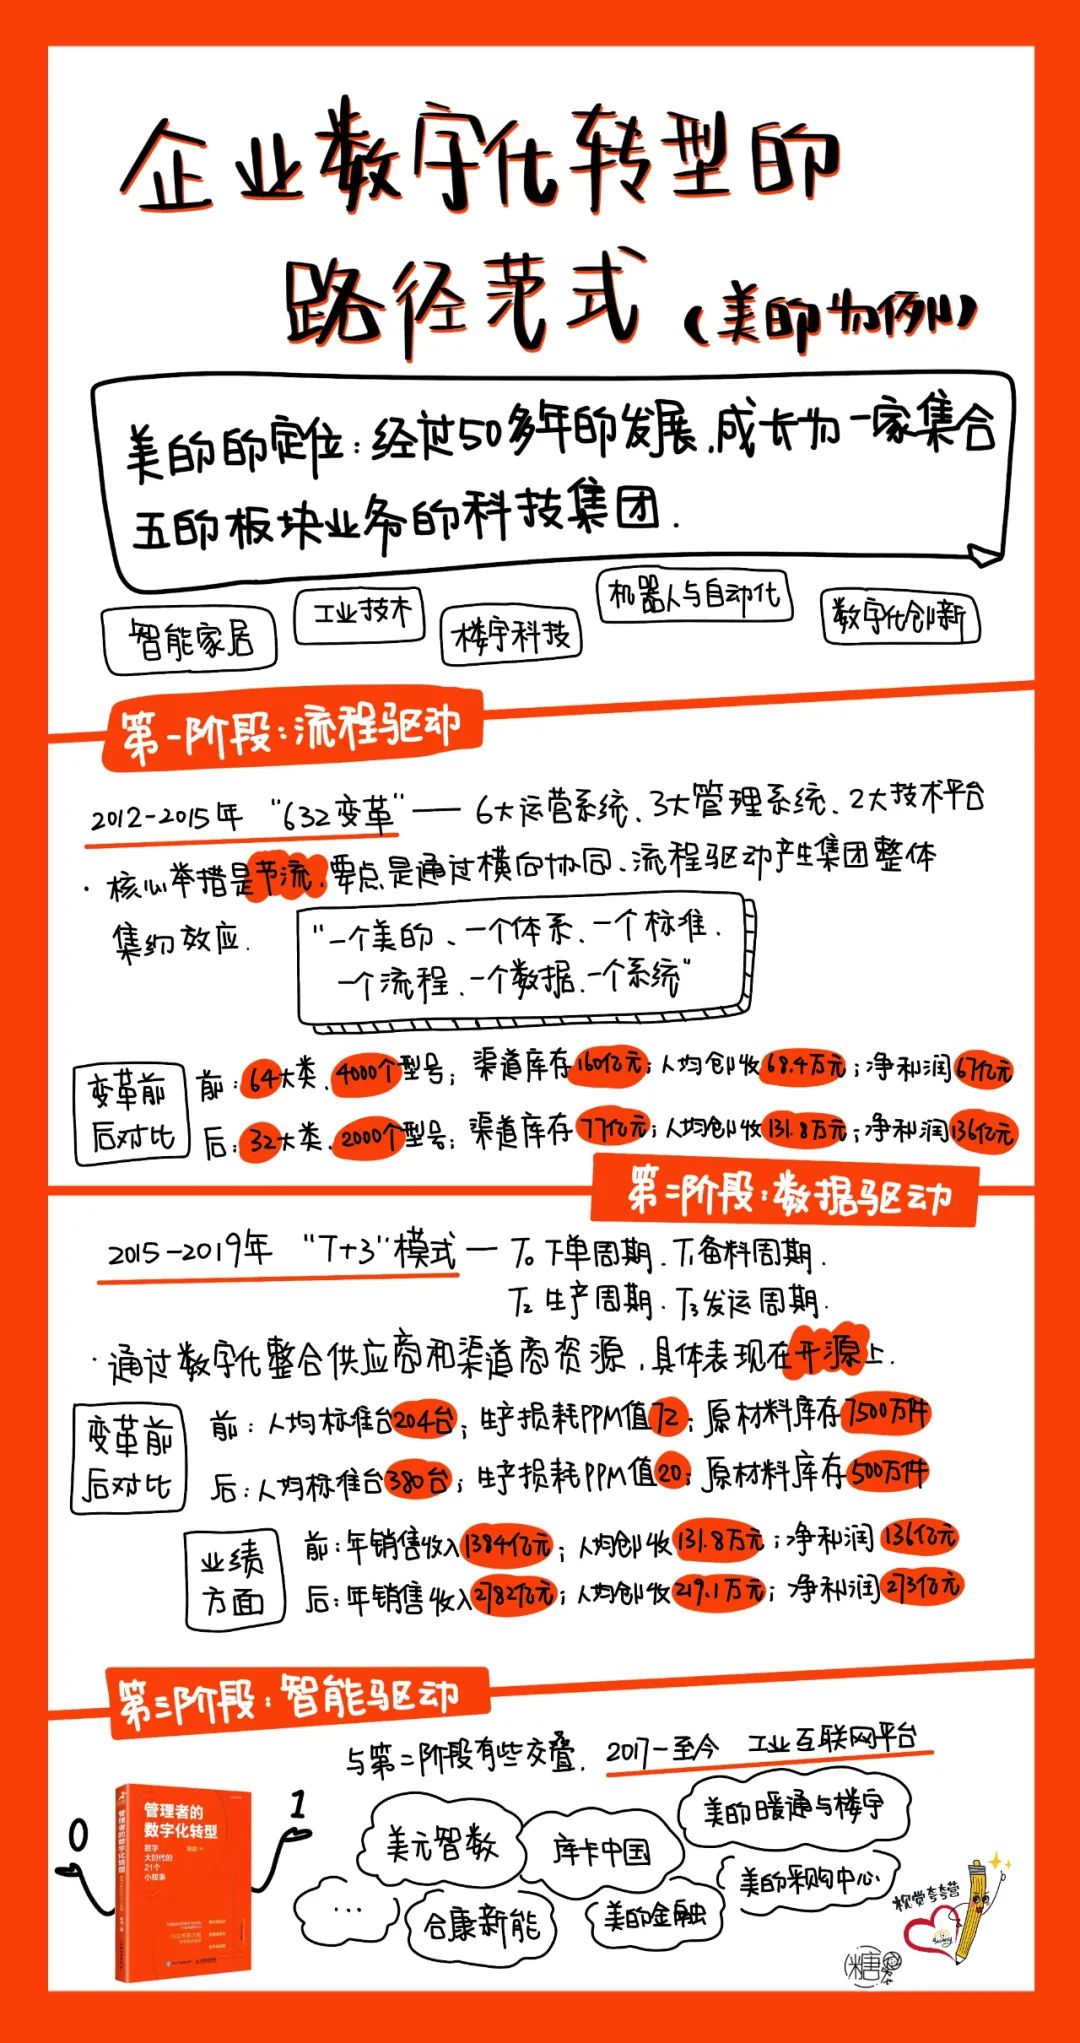 企业数字化转型的
路径范式(美的为例)
美的的定位:经过50多年的发展,成长为一家集合
五的板块业务的科技集团.
智能家居
工业技术
楼宇科技
机器人与自动化
数字化创新
第一阶段:流程驱动
2012-2015年 "632变革"—— 6大运营系统、3大管理系统、2大技术平台
·核心举措是节流,要点是通过横向协同、流程驱动产生集团整体
集约效应.
"一个美的、一个体系、一个标准、
一个流程、一个数据、一个系统"
变革前
后对比
前:64大类、4000个型号;渠道库存160亿元;人均创收68.4万元;净利润67亿元
后:32大类、2000个型号;渠道库存77亿元;人均创收131.8万元;净利润136亿元
第二阶段:数据驱动
2015-2019年 "T+3"模式— T0 下单周期、T1备料周期、
T2 生产周期、T3发运周期.
·通过数字化整合供应商和渠道商资源,具体表现在开源上.
变革前
后对比
前:人均标准台204台;生产损耗PPM值72;原材料库存7500万件
后:人均标准台380台;生产损耗PPM值20;原材料库存500万件
业绩
方面
前:年销售收入1384亿元;人均创收131.8万元;净利润136亿元
后:年销售收入2782亿元;人均创收219.1万元;净利润273亿元
第三阶段:智能驱动
与第二阶段有些交叠. 2017-至今 工业互联网平台
美的暖通与楼宇
美元智数
库卡中国
美的采购中心
...
合康新能
美的金融
0
1
管理者的
数字化转型
数字
大时代的
21个
小故事
管理者的数字化转型
视觉夸夸营
糖